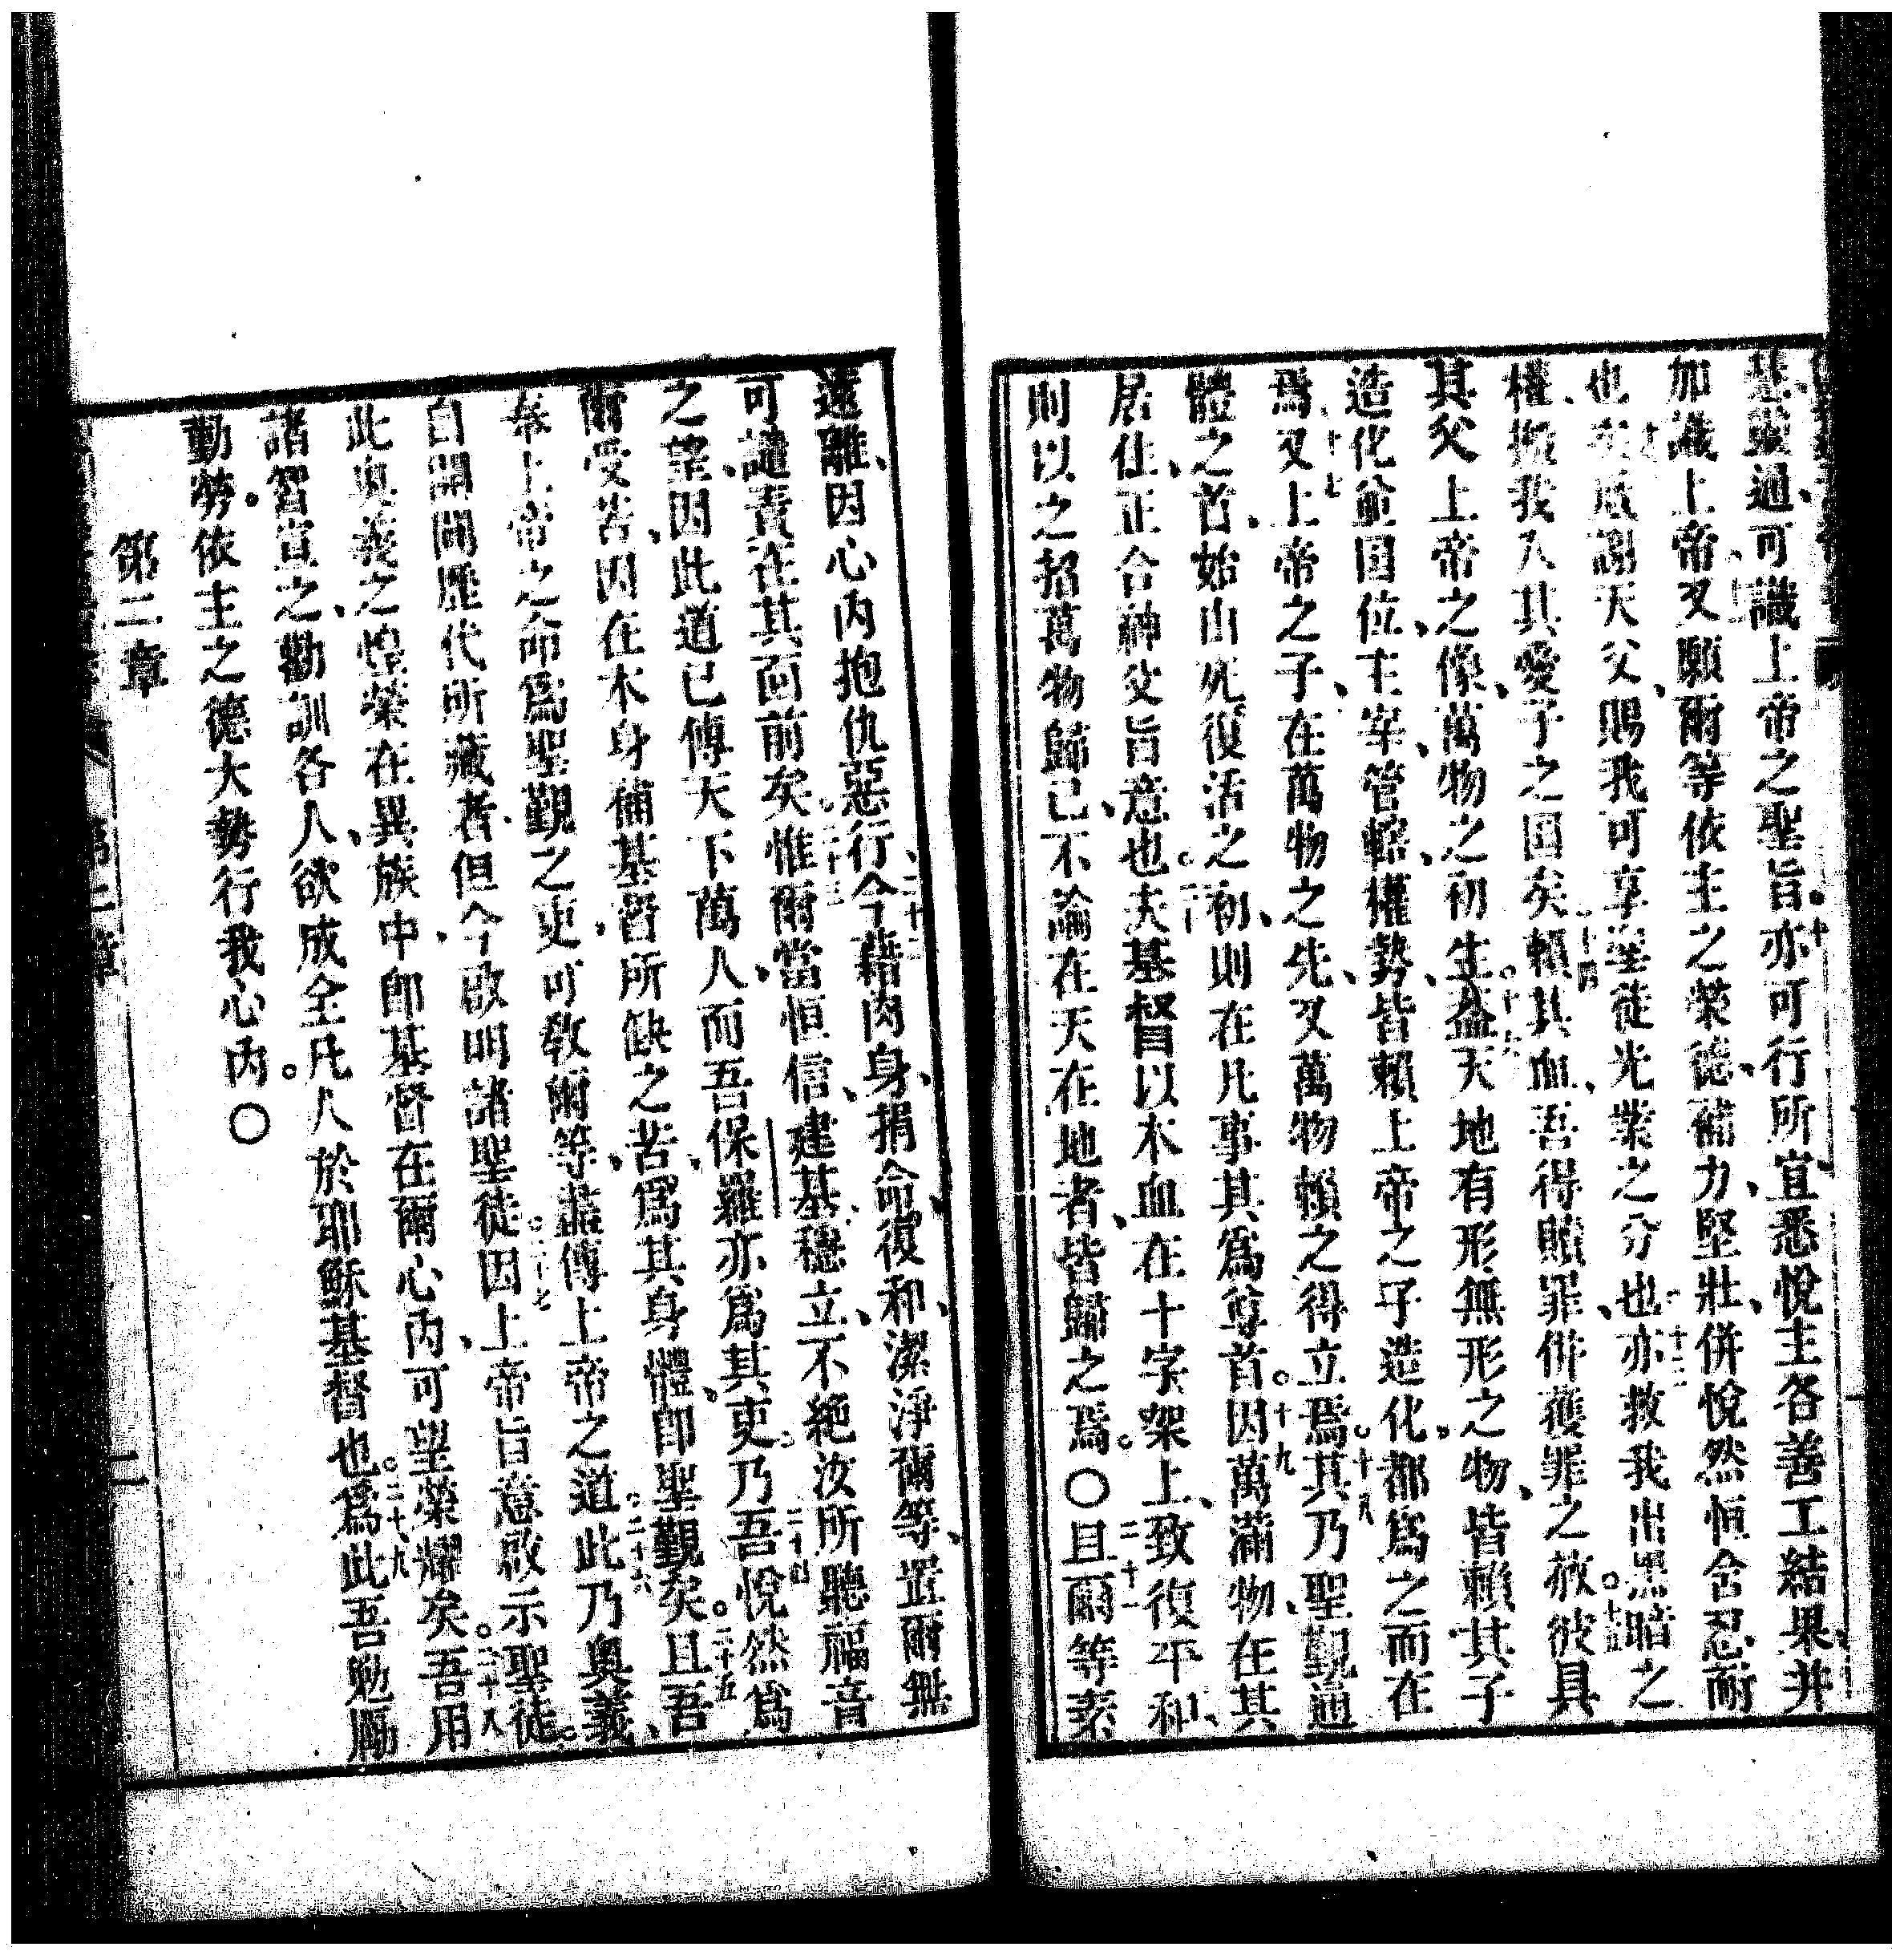 慧靈通、可識上帝之聖旨。十亦可行所宜悉悅主各善工結果并
加識上帝、又願爾等依主之榮德、補力、堅壯、併悅然恒含忍耐
也。十二致感謝天父、賜我可享聖徒光業之分也。十三亦救我出黑暗之
權、搬我入其愛子之国矣。十四賴其血、吾得贖罪、併獲罪之赦。十五彼具
其父上帝之像、萬物之初生。十六蓋天地有形無形之物、皆賴其子
造化並国位、主宰、管轄、權勢、皆賴上帝之子造化、都爲之而在
焉。十七又上帝之子、在萬物之先、又萬物賴之得立焉。十八其乃聖觀通
體之首、始由死復活之初、則在凡事其爲尊首。十九因萬滿物、在其
居住、正合神父旨意也。二十夫基督以木血在十字架上、致復平和、
則以之招萬物歸己、不論在天在地者、皆歸之焉。〇二十一且爾等素
遠離、因心內抱仇惡行、二十二今藉肉身、捐命、復和、潔淨爾等、置爾無
可譴責在其面前矣。二十三惟爾當恒信、建基、穩立、不絕汝所聽福音
之望、因此道已傳天下萬人、而吾保羅亦爲其吏。二十四乃吾悅然爲
爾受苦、因在本身補基督所缺之苦、爲其身體、即聖觀矣。二十五且吾
奉上帝之命爲聖觀之吏、可教爾等、盡傳上帝之道。二十六此乃奧義、
自開闢歷代所藏者、但今啟明諸聖徒。二十七因上帝旨意啟示聖徒、
此奧義之煌榮在異族中、即基督在爾心內、可望榮耀矣。二十八吾用
諸智宣之、勸訓各人、欲成全凡人於耶穌基督也。二十九爲此吾勉勵
勤勞。依主之德大勢行我心內。〇
第二章
二